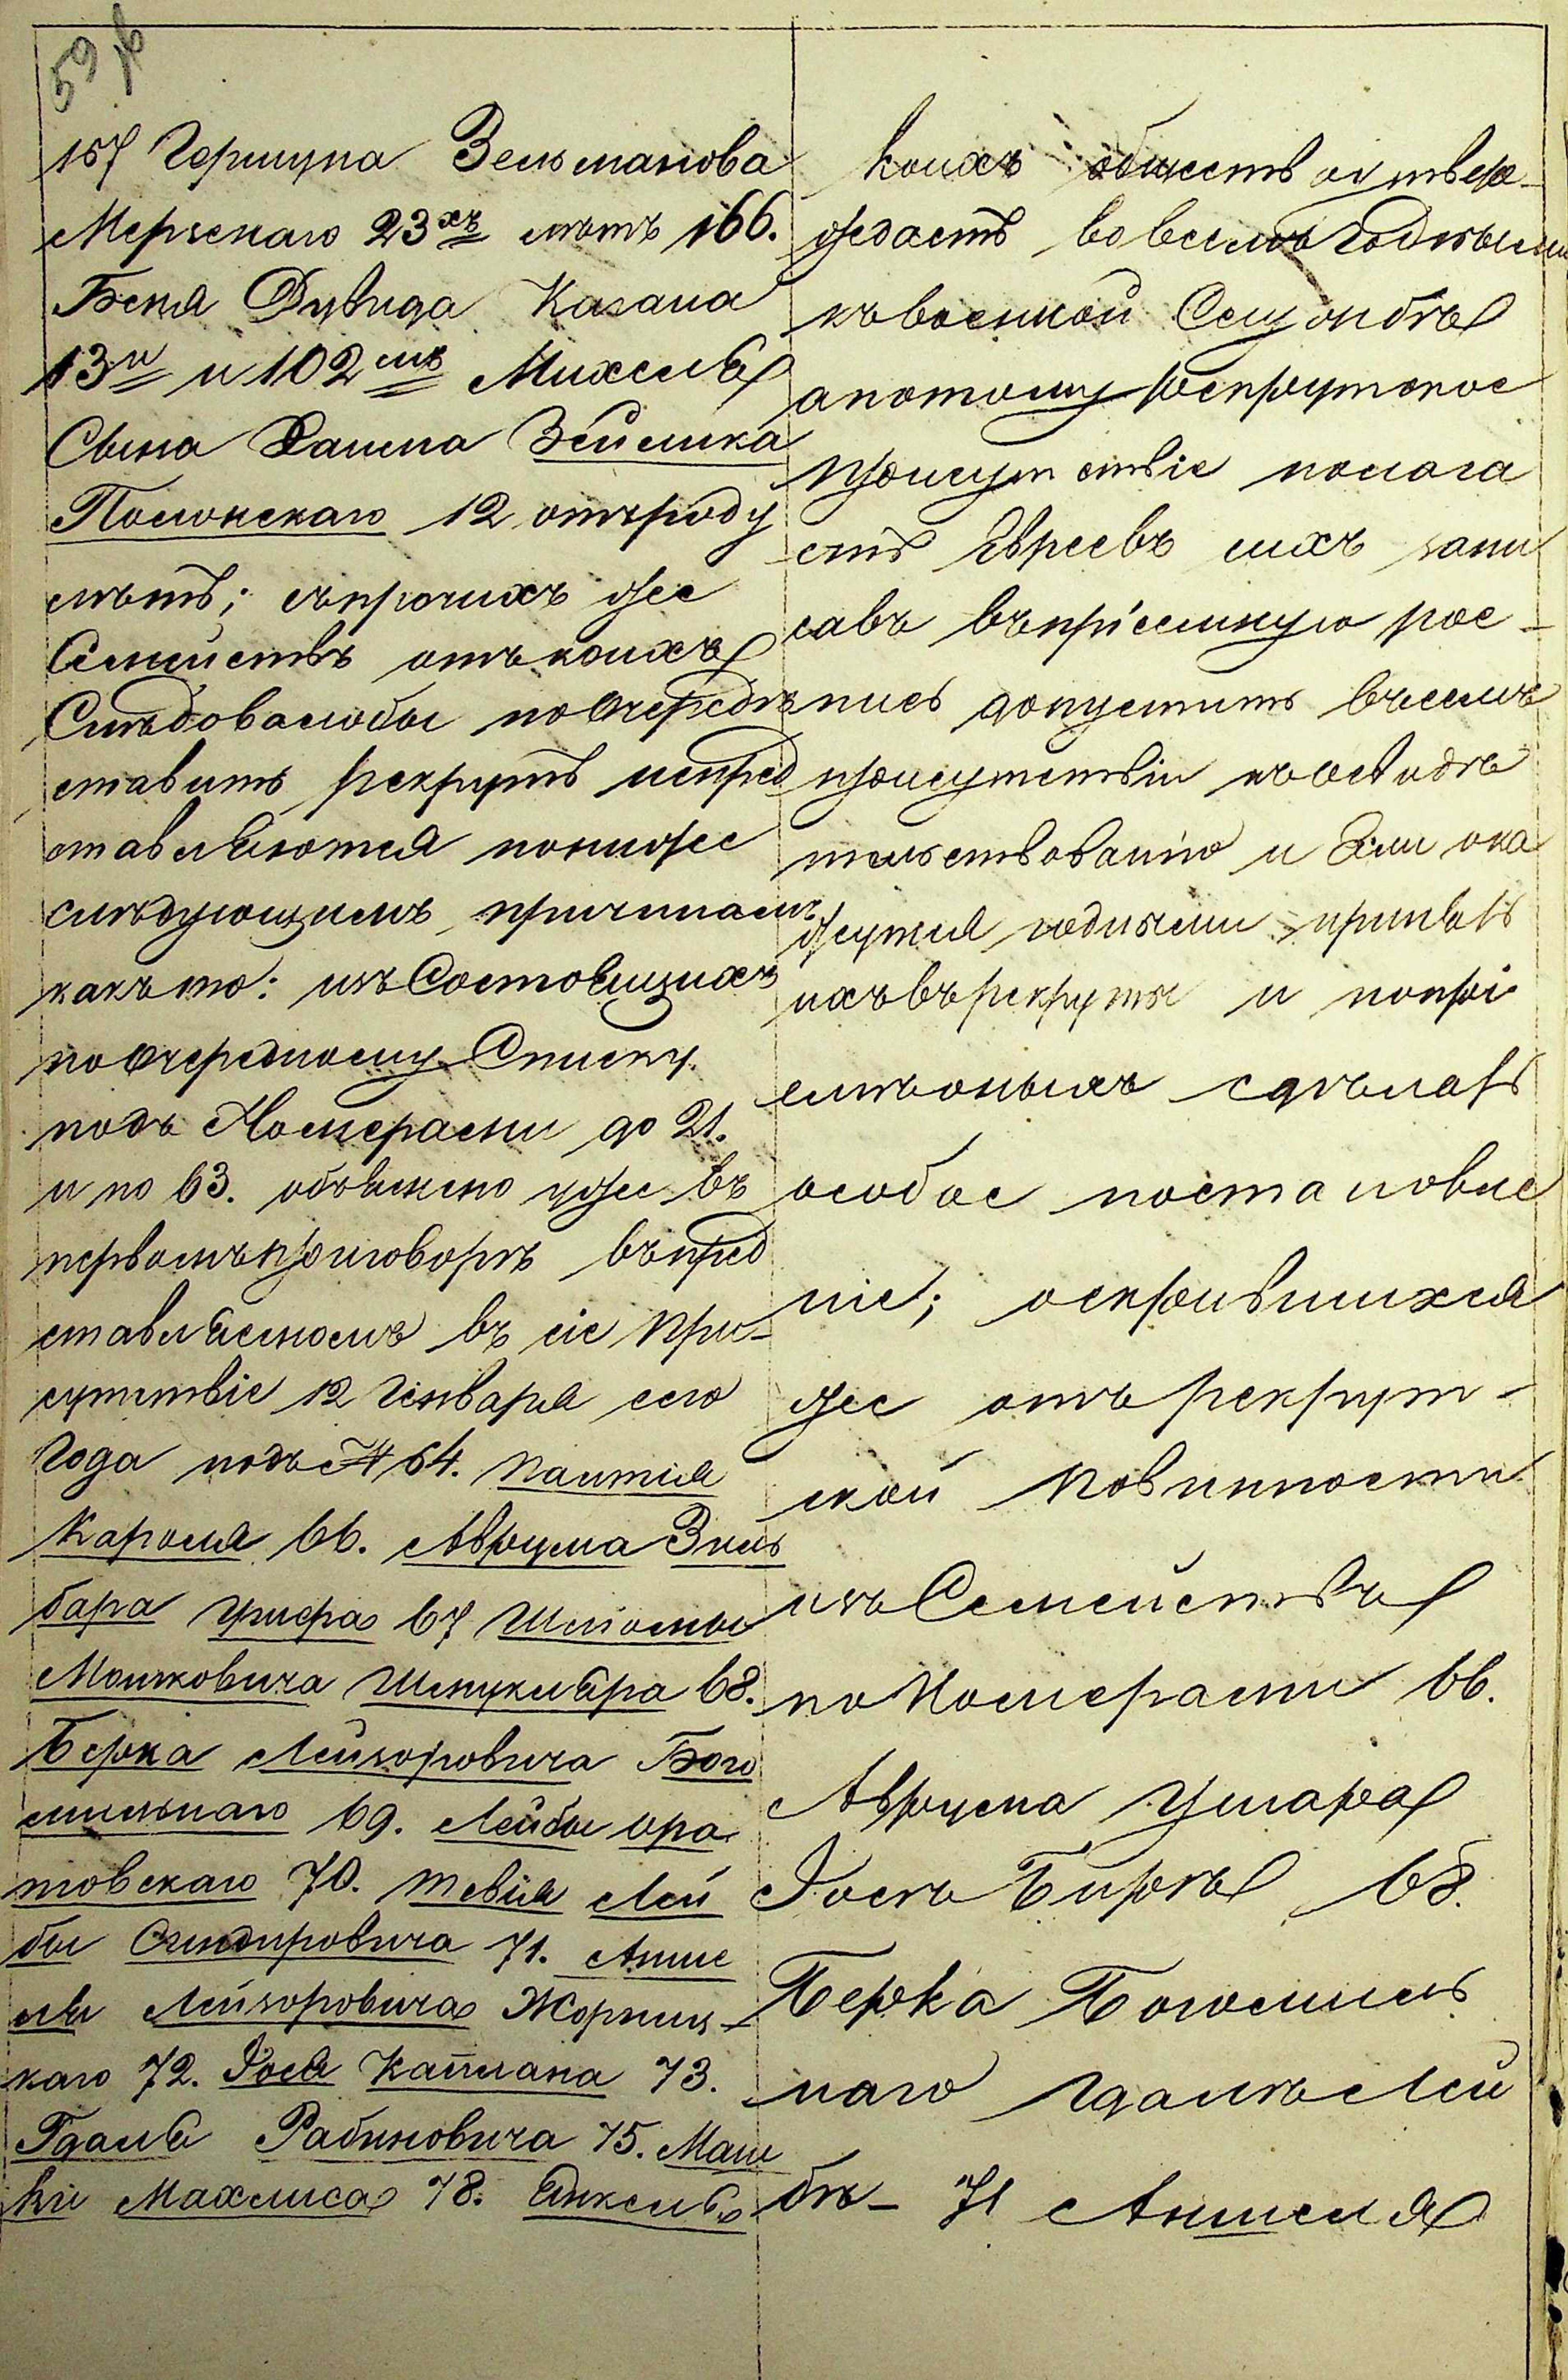 59 об
157 Гершуна Зельманова
Мерзскаго 23хъ лѣтъ 166.
Беня Дувида Казана
13и и 102мъ Михеля
Сына Хаима Зейлика
Полонскаго 12 отъроду
лѣтъ; съпрочихъ же
Семействъ отъкоихъ
Слѣдовалобы поочередѣ
ставить рекрутъ непред
ставляются пониже
слѣдующимъ причинамъ
какъто: изъСостоящихъ
поочередному Списку
подъ Номерами до 21.
и по 63. объяснено уже въ
первомъприговорѣ въпред
ставляемомъ въ сіе при-
сутствіе 12 Генваря сего
Года подъ № 64.
Кароля 66. Аврума Зиль
бара 67 Шлiомы
Мошковича Шмуклѣра 68.
Берка Лейзоровича Бого
мильнаго 69. Лейбы ора
товскаго 70. Тевiя Лей
бы Сендировича 71. Анше
ля Лейзоровича Жорниц-
каго 72. Іося Каплана 73.
Гдаля Рабиновича 75. Маш
кіи Махлиса 78. Янкеля
коихъ обществ оутвер-
ждаетъ вовсемъ Годными
къвоенной Службѣ
апотому рекрутское
присутствіе полага
етъ Евреевъ сихъ запи
савъ въпріемную рос-
пись допустить въсемъ
присутствіи къосвидѣ
тельствованію и Если ока
жутся годными принять
ихъвърекруты и попрі
емѣоныхъ сдѣлать
особое постановле
ніе; оскрывшихся
же отъ рекрут-
ской повинности
изъ Семействъ
поНомерами 66.
Аврума
Іось Биркъ 68.
Берка Богомиль
наго Гдаль Лей
бѣ- 71 Аншеля